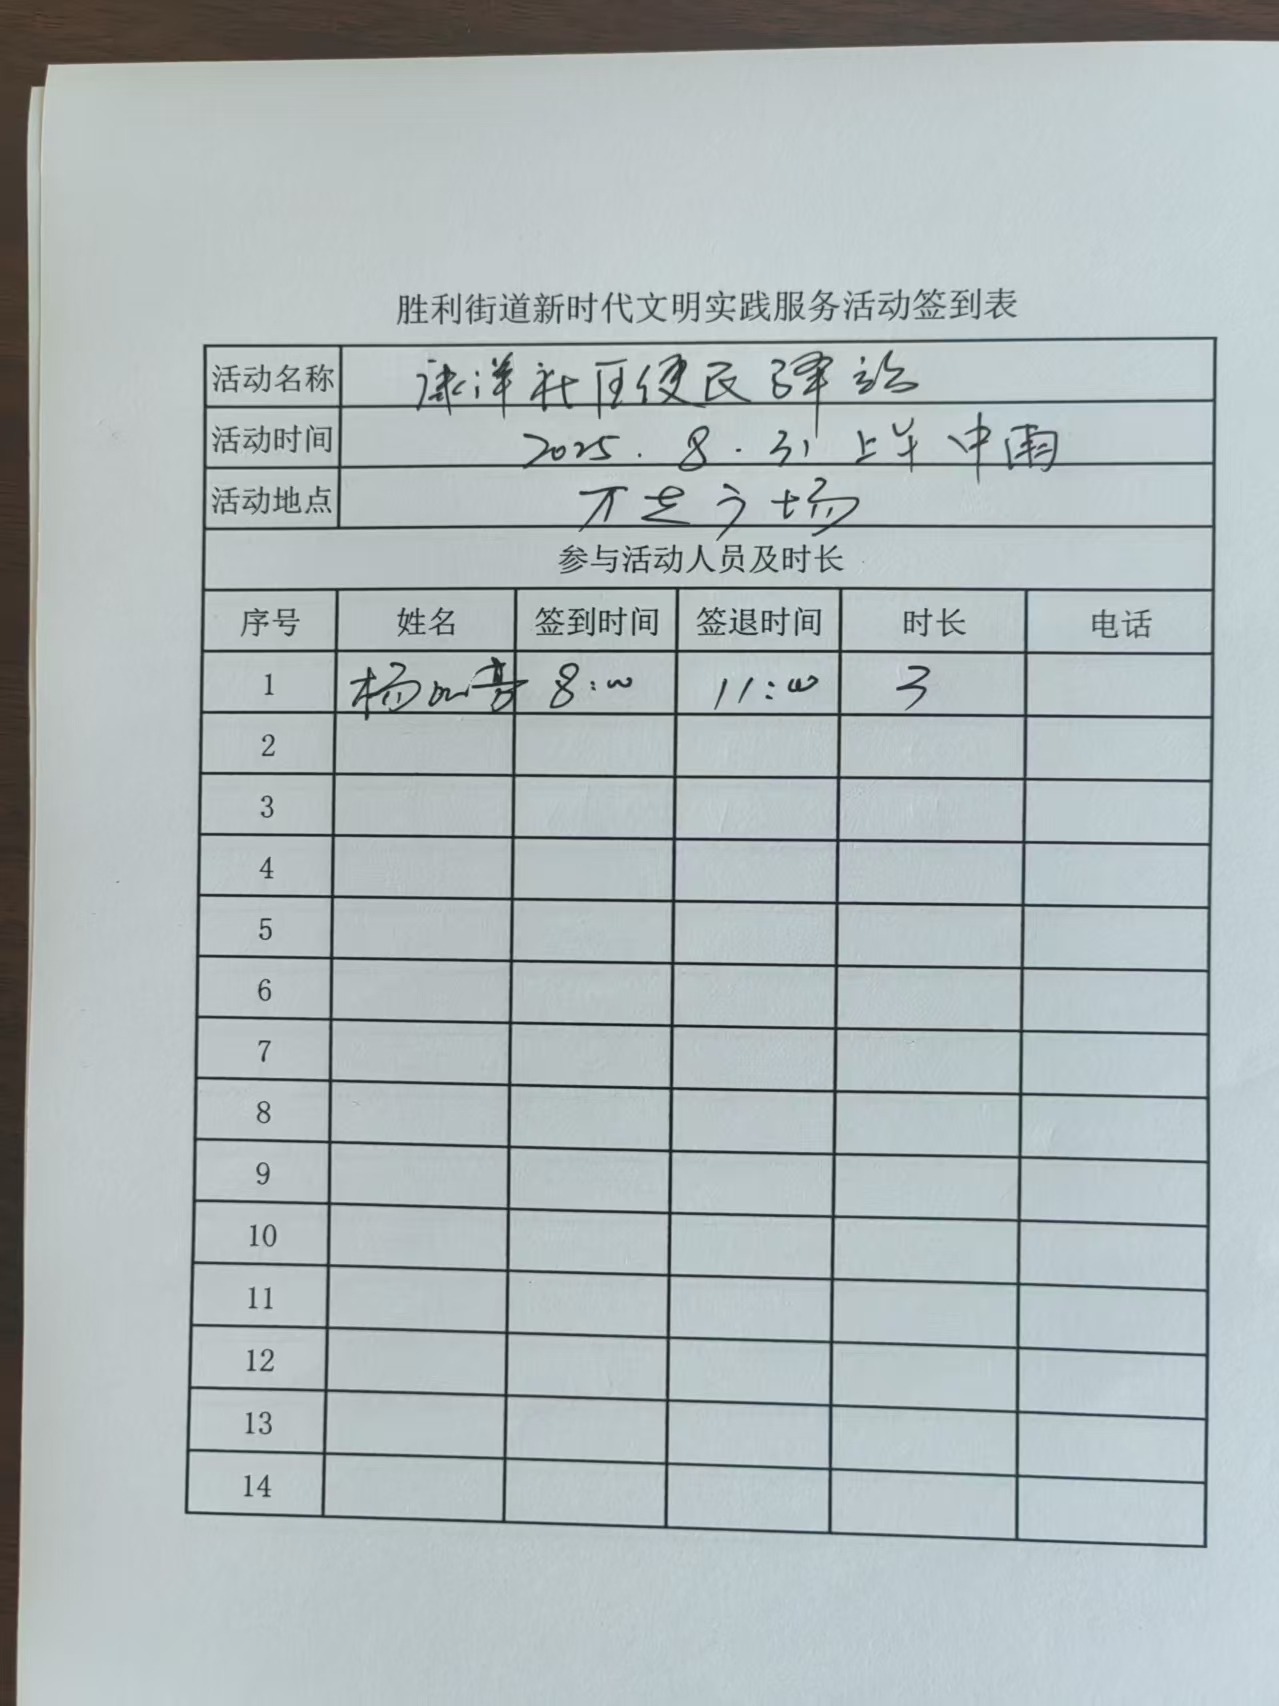 胜利街道新时代文明实践服务活动签到表
活动名称 康洋社区便民驿站
活动时间 2025.8.31 上午 中雨
活动地点 万达广场
参与活动人员及时长
序号 姓名 签到时间 签退时间 时长 电话
1 杨 8:00 11:00 3
2
3
4
5
6
7
8
9
10
11
12
13
14